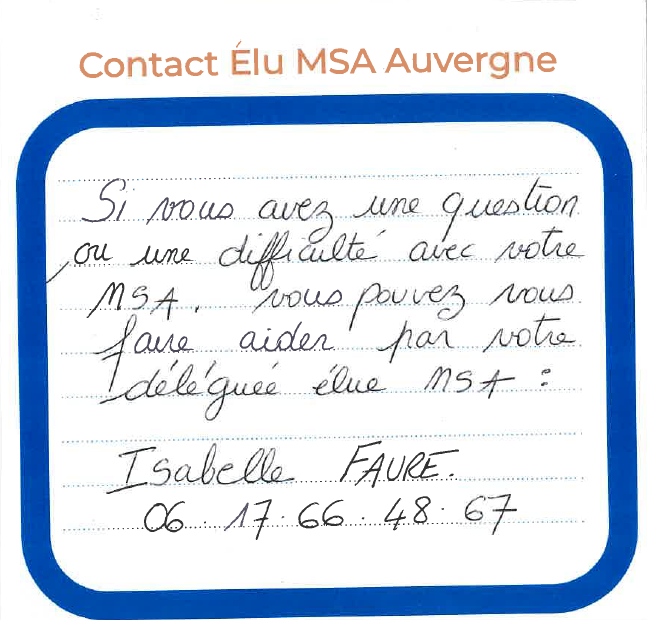 Contact Élu MSA Auvergne
Si vous avez une question
ou une difficulté avec votre
MSA, vous pouvez vous
faire aider par votre
déléguée élue MSA :
Isabelle FAURE.
06.17.66.48.67